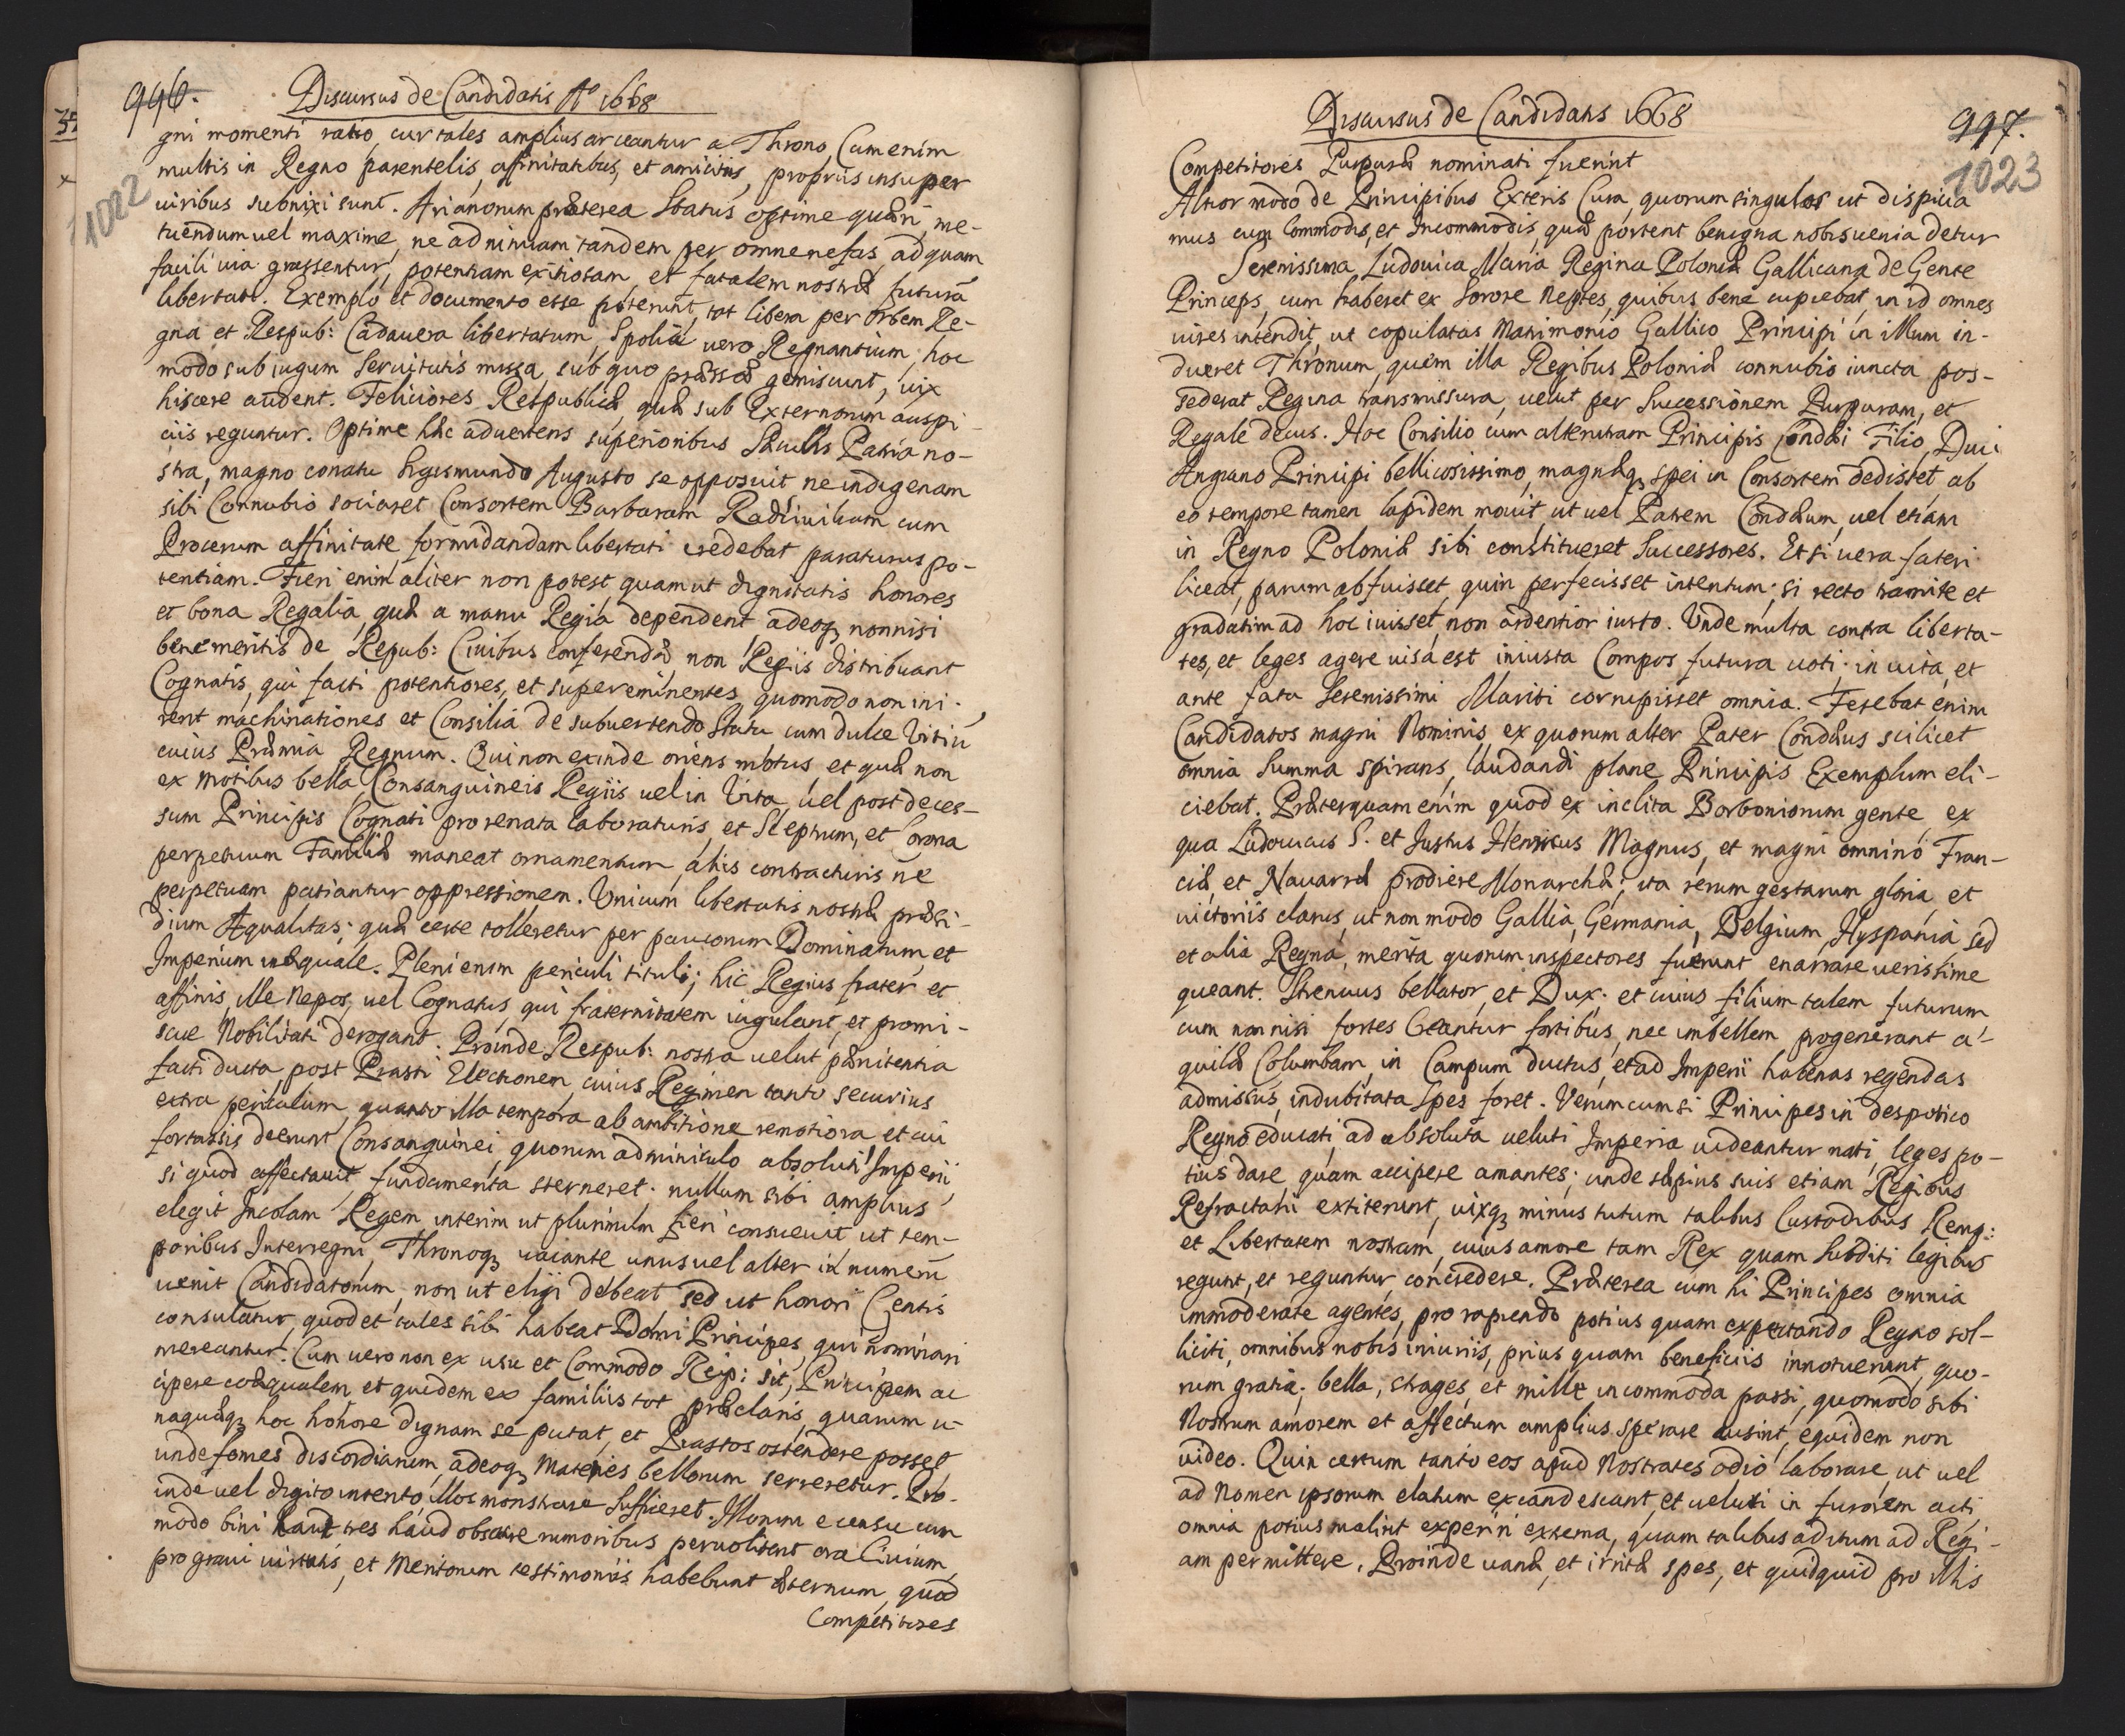 996. Discursus de Candidatis Aº 1668
1022
gni momenti ratio, cur tales amplius arceantur a Throno Cum enim
multis in Regno parentelis, affinitatibus, et amicitiis, propriis insuper
viribus subnixi sunt. Arianorum præterea Status optime quæri, me-
tuendum vel maxime, ne ad nimiam tandem per omne nefas, ad quam
facili via grassentur, potentiam exitiosam, et fatalem nostræ futurā
libertati. Exemplo et documento esse poterunt, tot libera per Orbem Re-
gna et Respub: Cadavera libertatum, Spolia vero Regnantium, hoc
modo sub iugum Servitutis missa, sub quo pressæ gemiscunt, vix
hiscere audent. Feliciores Respublicæ, quæ sub Externorum auspi-
ciis reguntur. Optime hæc advertens superioribus Sæculis Patria no-
stra, magno conatu Sigismundo Augusto se opposuit ne indigenam
sibi Connubio sociaret Consortem Barbaram Radiivilliam cum
Procerum affinitate, formidandam libertati credebat paraturus po-
tentiam. Fieri enim aliter non potest, quam ut dignitatis honores
et bona Regalia, quæ a manu Regia dependent adeoq3 nonnisi
bene meritis de Repub: Civibus conferenda, non Regiis distribuant
Cognatis, qui facti potentiores, et supereminentes, quomodo non ini-
rent machinationes et Consilia de subvertendo Statu cum dulce Vitiū
cuius Præmia Regnum. Qui non exinde oriens motus et quæ non
ex motibus bella Consanguineis Regiis vel in Vita, vel post deces-
sum Principis Cognati pro renata laboraturis, et Sceptrum, et Corona
perpetuum Familiæ maneat ornamentum, aliis contracturis ne
perpetuam patiantur oppressionem. Unicum libertatis nostræ præsi-
dium Æqualitas; quæ certe tolleretur per paucorum Dominatum et
Imperium inæquale. Pleni enim periculi tituli; hic Regius frater et
affinis, ille Nepos, vel Cognatus, qui fraternitatem iugulant, et promi-
scue Nobilitati derogant. Proinde Respub: nostra velut pænitentia
facti ducta, post Piasti Electionem cuius Regimen tanto securius
extra periculum, quanto illa tempora ab ambitione remotiora et cui
fortassis deerunt Consanguinei, quorum adminiculo absoluti Imperii,
si quod affectavit, fundamenta sterneret; nullum sibi amplius
elegit Incolam Regem interim ut plurimum fieri consuevit ut tem-
poribus Interregni, Thronoq3 vacante unus vel alter in numerū
venit Candidatorum, non ut eligi debeat sed ut honori Gentis
consulatur, quod et tales sibi habeat Domi Principes, qui nominari
mereantur. Cum vero non ex usu et Commodo Reip: sit, Principem ac
cipere coæqualem et quidem ex familiis tot præclaris, quarum u-
naquæq3 hoc honore dignam se putat, et Piastos ostendere posset
unde fomes discordiarum, adeoq3 Materies bellorum serveretur. Pro-
inde vel digito intento illos monstrare Sufficeret. Illorum e censu cum
modo bini haut tres haud obscure rumoribus pervolitent ora Civium,
pro gravi virtutis, et Meritorum testimoniis habebunt æternum, quod
Competitores
Discursus de Candidatis 1668 997.
1023
Competitores Purpuræ nominati fuerint
Altior modo de Principibus Exteris Cura, quorum singulos ut dispicia
mus cum Commodis, et Incommodis, quæ portent benigna nobis venia detur
Serenissima Ludovica Maria Regina Poloniæ Gallicana de Gente
Princeps, cum haberet ex Sorore Neptes, quibus bene cupiebat, in id omnes
vires intendit, ut copulatas Matrimonio Gallico Principi in illum in-
duceret Thronum, quem illa Regibus Poloniæ connubio iuncta pos-
sederat Regina transmissura, velut per Successionem Purpuram, et
Regale decus. Hoc Consilio cum alterutram Principis Condæi Filio, Duci
Angiano Principi bellicosissimo, magnæq3 spei in Consortem dedisset, ab
eo tempore tamen lapidem movit, ut vel Patrem Condæum, vel etiam
in Regno Poloniæ sibi constitueret Successores. Et si vera fateri
liceat, parum abfuisset, quin perfecisset intentum; si recto tramite et
gradatim ad hoc iuisset, non ardentior iusto. Unde multa contra liberta-
tes, et leges agere visa est iniusta Compos futura voti; in vita, et
ante fata Serenissimi Mariti corrupisset omnia. Ferebat enim
Candidatos magni Nominis, ex quorum alter Pater Condæus scilicet
omnia Summa spirans, laudandi plane Principis Exemplum eli-
ciebat. Præterquam enim quod ex inclita Borboniorum gente, ex
qua Ludovicus S. et Justus Henricus Magnus, et magni omnino Fran-
ciæ, et Navarræ prodiere Monarchæ; ita rerum gestarum gloria, et
victoriis clarus, ut non modo Gallia, Germania, Belgium, Hyspania, sed
et alia Regna, merita quorum inspectores fuerunt enarrare verissime
queant. Strenuus bellator, et Dux; et cuius filium talem futurum
cum non nisi fortes Creantur fortibus, nec imbellem progenerant a-
quilæ Columbam, in Campum ductus, et ad Imperii habenas regendas
admissus, indubitata Spes foret. Verum cum si Principes in despotico
Regno educati, ad absoluta veluti Imperia videantur nati, leges po-
tius dare quam accipere amantes; unde sæpius suis etiam Regibus
Refractarii extiterunt, vixq3 minus tutum talibus Custodibus Remp:
et Libertatem nostram, cuius amore tam Rex quam Subditi legibus
regunt, et reguntur, concredere. Præterea cum hi Principes omnia
immoderate agentes, pro rapiendo potius quam expectando Regno sol-
liciti, omnibus nobis iniuriis, prius quam beneficiis innotuerunt, quo-
rum gratia; bella, strages, et mille incommoda passi, quomodo sibi
Nostrum amorem et affectum amplius sperare ausint, equidem non
video. Quin certum tanto eos apud Nostrates odio laborare, ut vel
ad Nomen ipsorum elatum excandescant, et veluti in furorem acti,
omnia potius malint experiri extema, quam talibus aditum ad Regi-
am permittere. Proinde vanæ, et irritæ spes, et quidquid pro illis